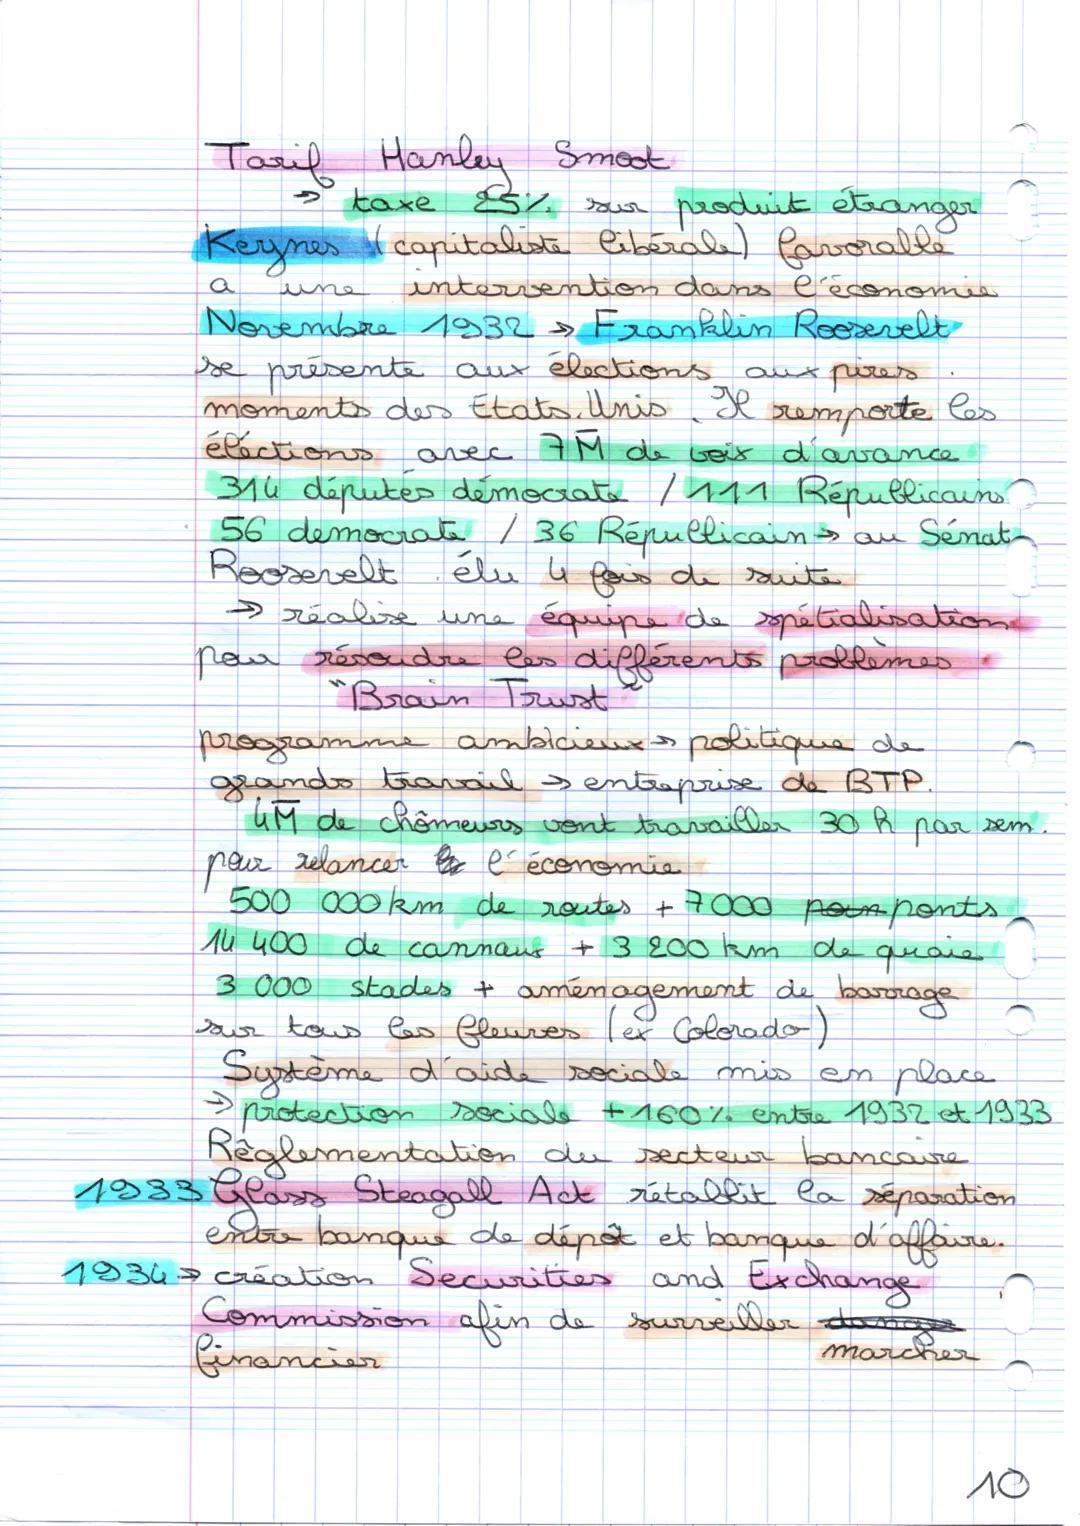 Tarif Hanley Smoot
→ taxe 25% sur produit étranger
Keynes (capitaliste libérale) favorable
a une intervention dans l'économie
Novembre 1932 → Franklin Roosevelt
se présente aux élections aux pires
moments des Etats-Unis. Il remporte les
éléctions avec 7M de voix d'avance
314 députés démocrate / 111 Républicains
56 democrate / 36 Républicain → au Sénat
Roosevelt élu 4 fois de suite
→ réalise une équipe de spétialisation
pour résoudre les différents problèmes
"Brain Trust"
programme ambicieux → politique de
grands travail → entreprise de BTP.
4M de chômeurs vont travailler 30 h par sem.
pour relancer l'économie
500 000 km de routes + 7000 pour ponts
14 400 de cannaux + 3 200 km de quaie
3 000 stades + aménagement de barrage
sur tous les fleuves (ex Colorado)
Système d'aide sociale mis en place
→ protection sociale +160% entre 1932 et 1933
Règlementation du secteur bancaire
1933 Glass Steagall Act rétablit la séparation
entre banque de dépôt et banque d'affaire.
1934 → création Securities and Exchange
Commission afin de surveiller
marcher
financier
10